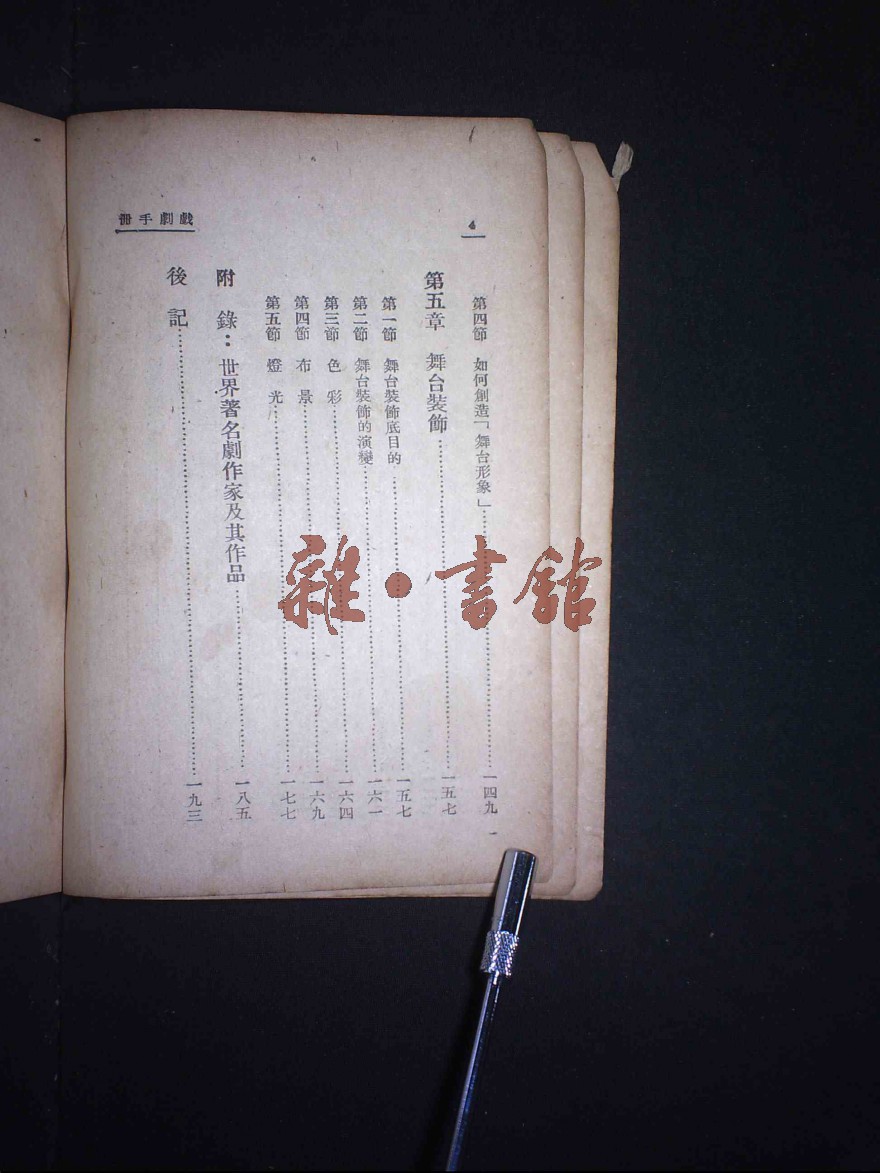 戲劇手冊
4
第四節 如何創造「舞台形象」……一四九
第五章 舞台裝飾……一五七
第一節 舞台裝飾底目的……一五七
第二節 舞台裝飾的演變……一六一
第三節 色彩……一六四
第四節 布景……一六九
第五節 燈光……一七七
附錄：世界著名劇作家及其作品……一八五
後記……一九三
雜·書館